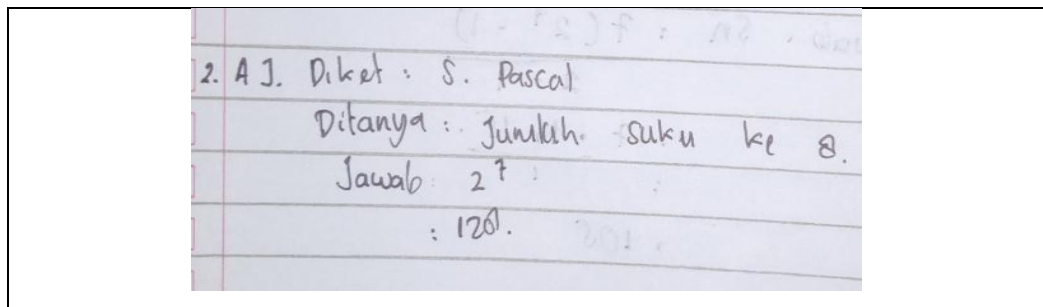 2. A J. Diket : S. Pascal
Ditanya : Jumlah suku ke 8.
Jawab 2⁷
: 128.